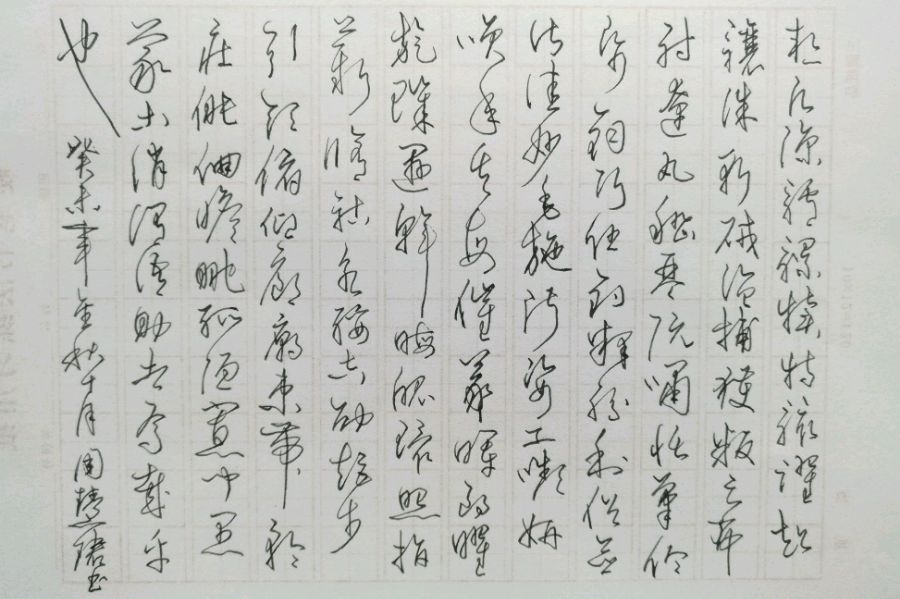 熱願涼驢騾犢特駭躍超
驤誅斬賊盜捕獲叛亡布
射遼丸嵇琴阮嘯恬筆倫
紙鈞巧任釣釋紛利俗並
皆佳妙毛施淑姿工顰妍
笑年矢每催羲暉朗曜
璇璣懸斡晦魄環照指
薪修祜永綏吉劭矩步
引領俯仰廊廟束帶矜
莊徘徊瞻眺孤陋寡聞愚
蒙等誚謂語助者焉哉乎
也 癸未年金秋十月周慧珺书